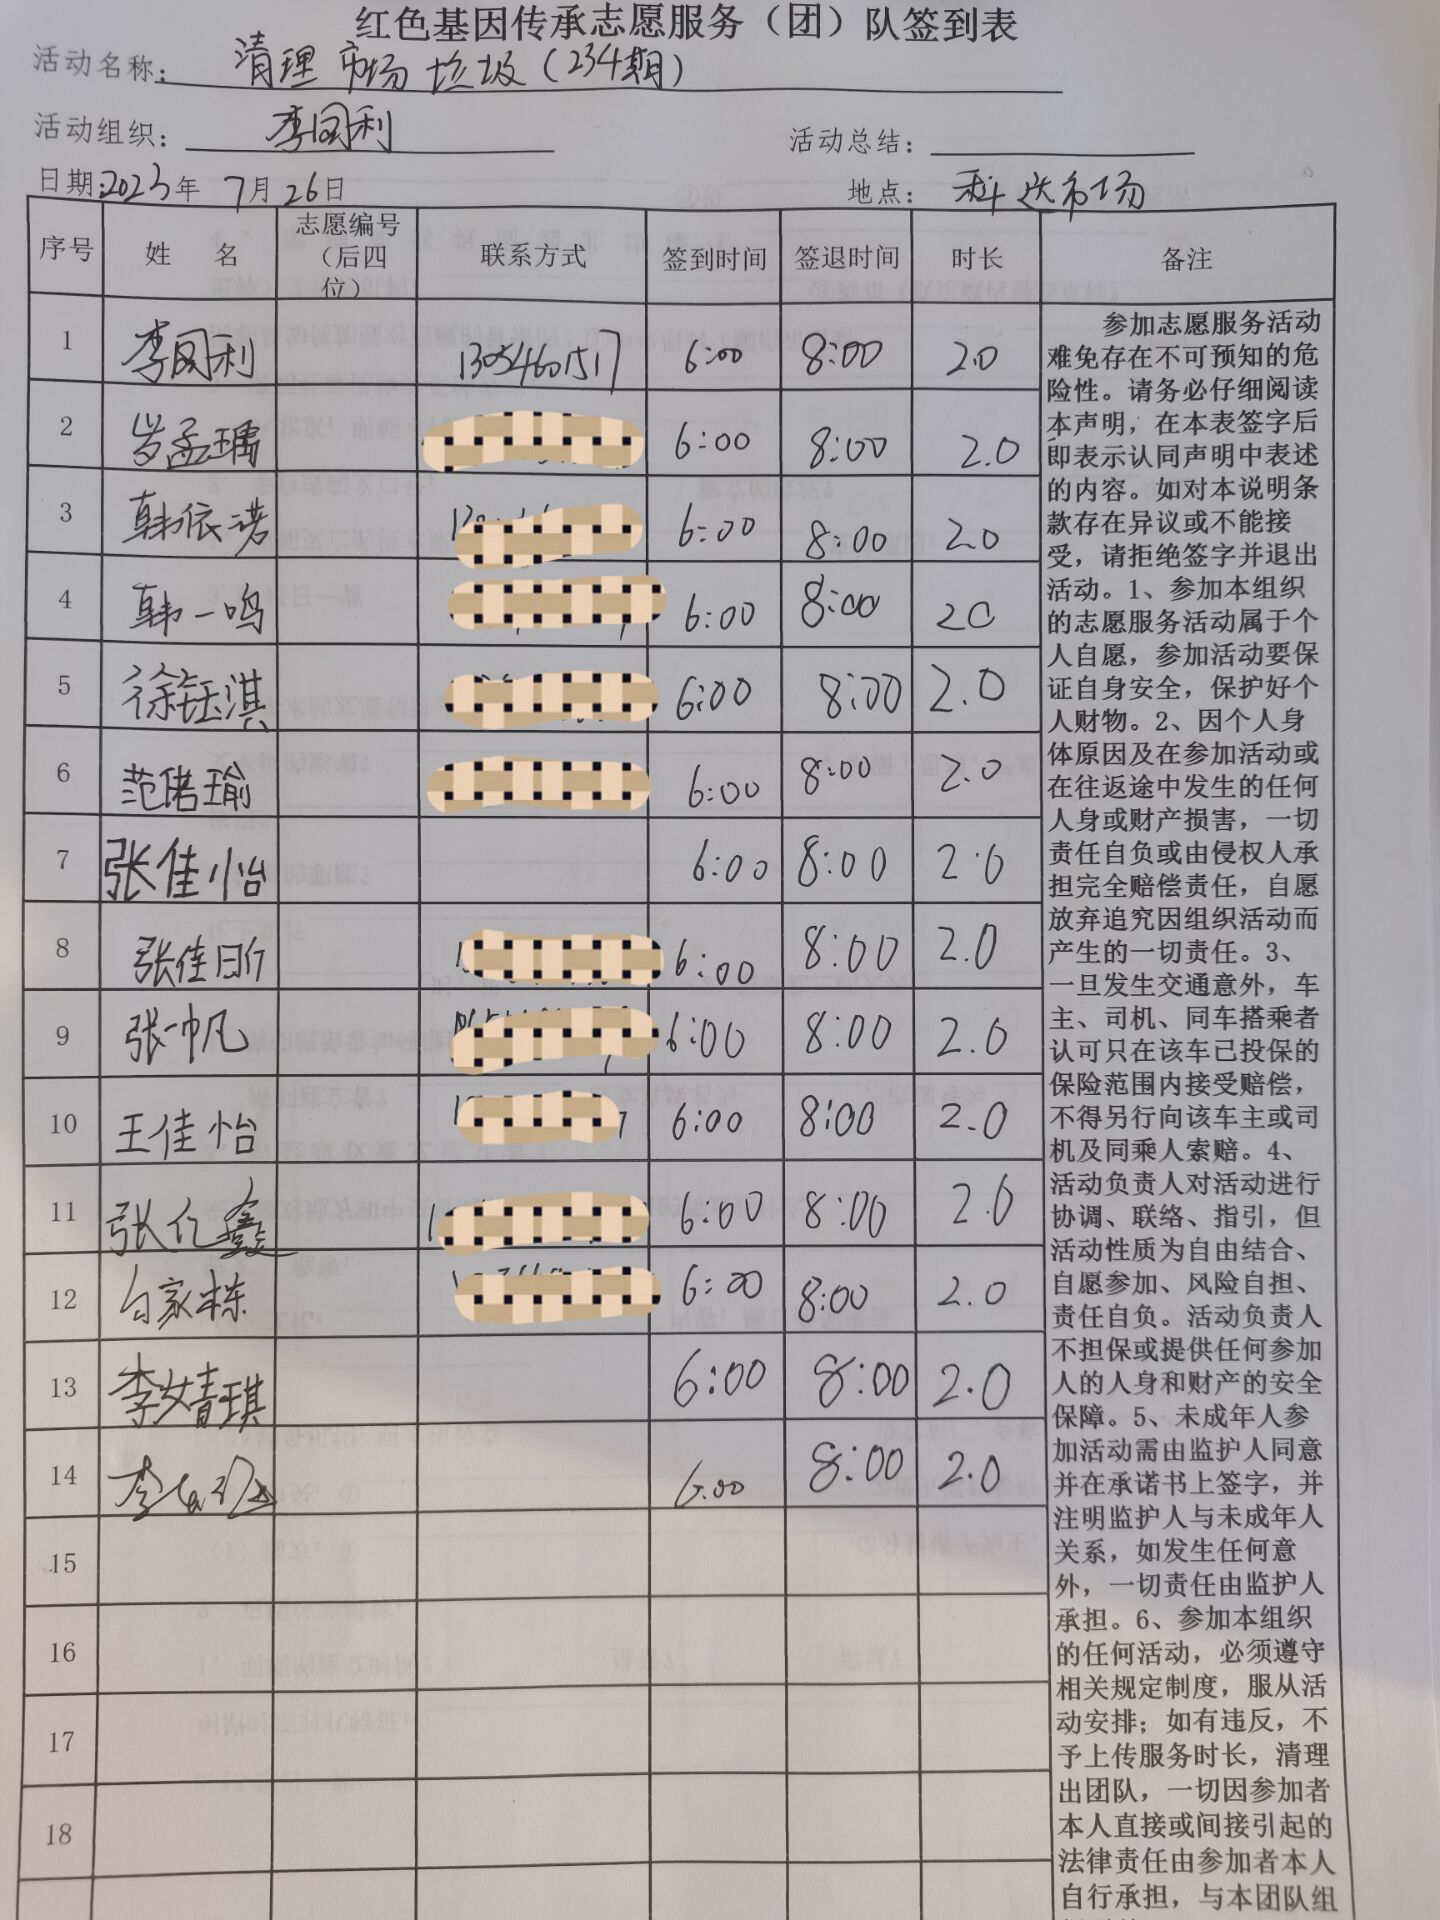 红色基因传承志愿服务（团）队签到表
活动名称：清理市场垃圾（234期）
活动组织：李同利 活动总结：
日期：2023年7月26日 地点：科达市场
序号 姓 名 志愿编号（后四位） 联系方式 签到时间 签退时间 时长 备注
1 李同利 13054601517 6:00 8:00 2.0
2 岁孟瑀 6:00 8:00 2.0
3 韩依诺 6:00 8:00 2.0
4 韩一鸣 6:00 8:00 20
5 徐钰淇 6:00 8:00 2.0
6 范偌瑜 6:00 8:00 2.0
7 张佳怡 6:00 8:00 2.0
8 张佳昕 6:00 8:00 2.0
9 张一帆 6:00 8:00 2.0
10 王佳怡 6:00 8:00 2.0
11 张亿鑫 6:00 8:00 2.0
12 白家栋 6:00 8:00 2.0
13 李婧琪 6:00 8:00 2.0
14 李 6:00 8:00 2.0
15
16
17
18
参加志愿服务活动
难免存在不可预知的危
险性。请务必仔细阅读
本声明，在本表签字后
即表示认同声明中表述
的内容。如对本说明条
款存在异议或不能接
受，请拒绝签字并退出
活动。1、参加本组织
的志愿服务活动属于个
人自愿，参加活动要保
证自身安全，保护好个
人财物。2、因个人身
体原因及在参加活动或
在往返途中发生的任何
人身或财产损害，一切
责任自负或由侵权人承
担完全赔偿责任，自愿
放弃追究因组织活动而
产生的一切责任。3、
一旦发生交通意外，车
主、司机、同车搭乘者
认可只在该车已投保的
保险范围内接受赔偿，
不得另行向该车主或司
机及同乘人索赔。4、
活动负责人对活动进行
协调、联络、指引，但
活动性质为自由结合、
自愿参加、风险自担、
责任自负。活动负责人
不担保或提供任何参加
人的人身和财产的安全
保障。5、未成年人参
加活动需由监护人同意
并在承诺书上签字，并
注明监护人与未成年人
关系，如发生任何意
外，一切责任由监护人
承担。6、参加本组织
的任何活动，必须遵守
相关规定制度，服从活
动安排；如有违反，不
予上传服务时长，清理
出团队，一切因参加者
本人直接或间接引起的
法律责任由参加者本人
自行承担，与本团队组